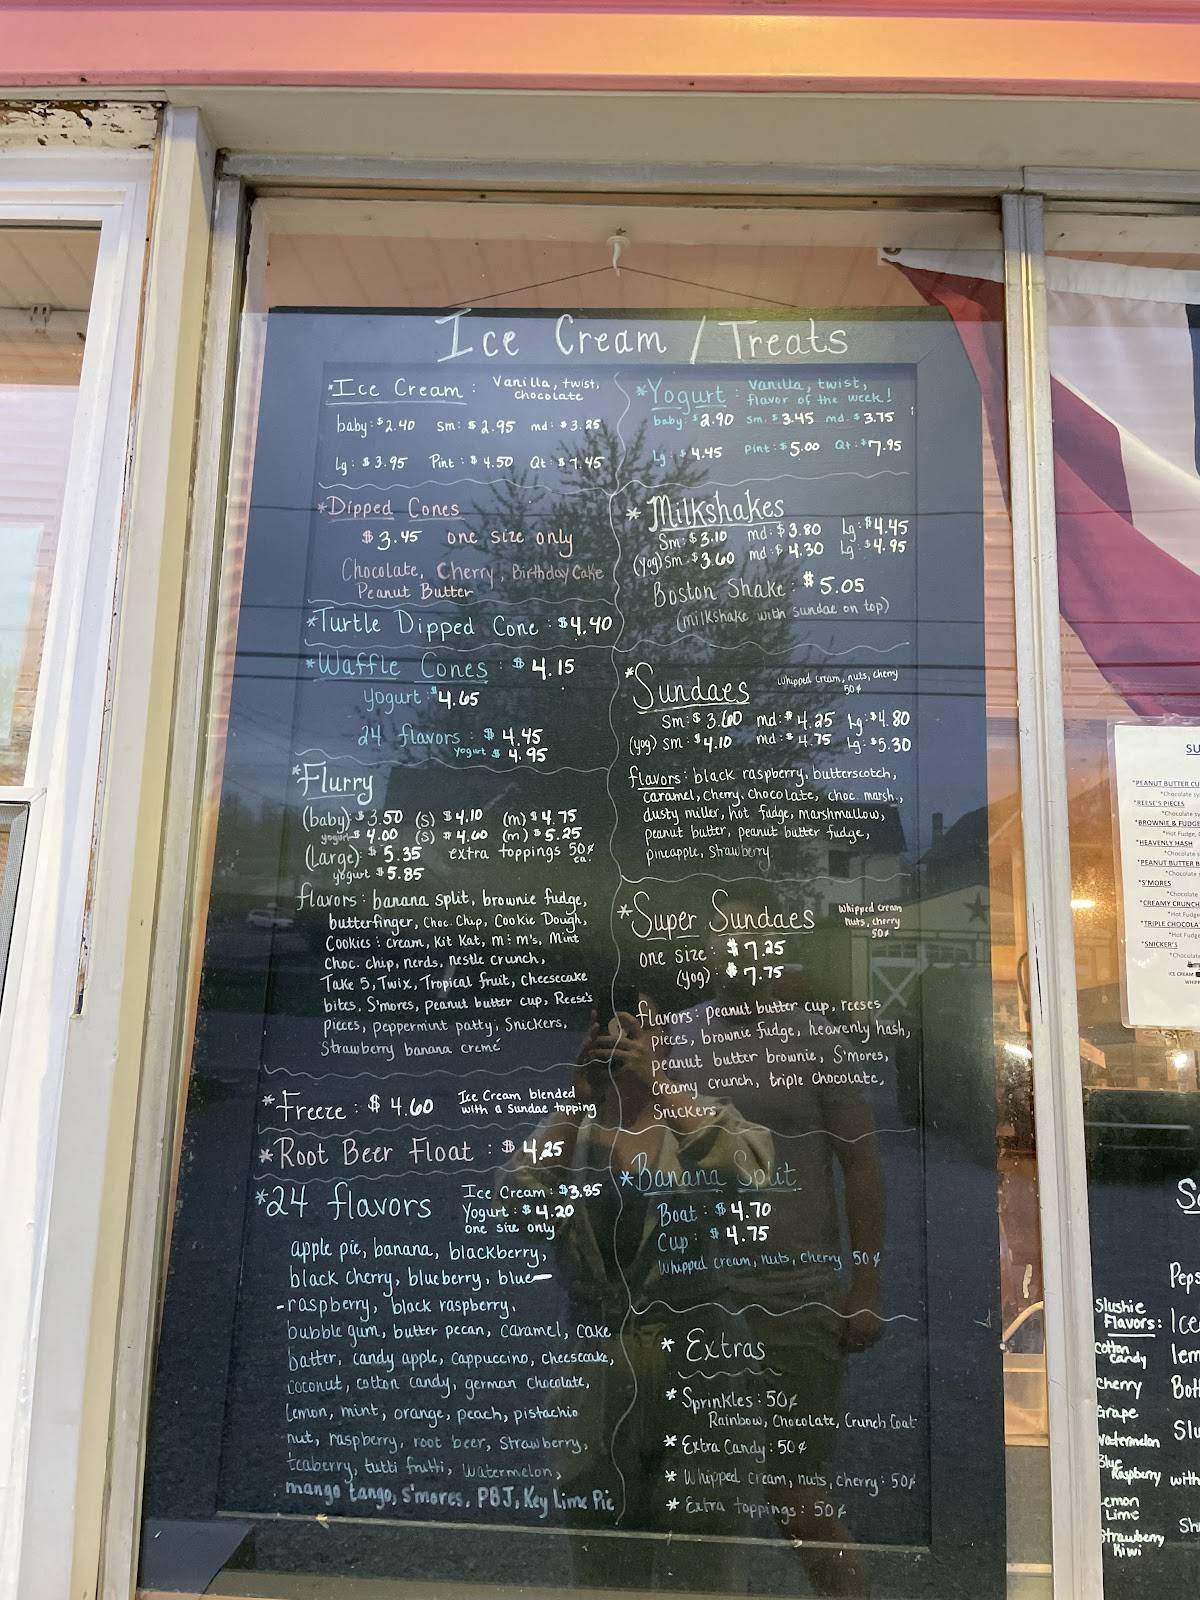 Ice Cream / Treats
*Ice Cream : Vanilla, twist,
chocolate
baby: $2.40 sm: $2.95 md: $3.25
Lg: $3.95 Pint: $4.50 Qt: $7.45
*Dipped Cones
$3.45 one size only
Chocolate, Cherry, Birthday Cake
Peanut Butter
*Turtle Dipped Cone : $4.40
*Waffle Cones : $4.15
yogurt: $4.65
24 flavors : $4.45
yogurt $4.95
*Flurry
(baby): $3.50 (S) $4.10 (m) $4.75
yogurt $4.00 (S) $4.60 (m) $5.25
(Large): $5.35 extra toppings 50¢
ea.
yogurt $5.85
flavors: banana split, brownie fudge,
butterfinger, choc. chip, Cookie Dough,
Cookies & cream, Kit Kat, m&m's, Mint
choc. chip, nerds, nestle crunch,
Take 5, Twix, Tropical fruit, cheesecake
bites, S'mores, peanut butter cup, Reese's
pieces, peppermint patty, Snickers,
Strawberry banana cremé
*Freeze : $4.60 Ice Cream blended
with a sundae topping
*Root Beer Float : $4.25
*24 flavors Ice Cream: $3.85
Yogurt: $4.20
one size only
apple pie, banana, blackberry,
black cherry, blueberry, blue-
-raspberry, black raspberry,
bubble gum, butter pecan, caramel, cake
batter, candy apple, cappuccino, cheesecake,
coconut, cotton candy, german chocolate,
lemon, mint, orange, peach, pistachio
nut, raspberry, root beer, strawberry,
teaberry, tutti frutti, watermelon,
mango tango, s'mores, PBJ, Key Lime Pie
*Yogurt : Vanilla, twist,
flavor of the week!
baby: $2.90 sm. $3.45 md. $3.75
Lg: $4.45 Pint: $5.00 Qt: $7.95
*Milkshakes
Sm: $3.10 md: $3.80 Lg: $4.45
(yog) Sm $3.60 md: $4.30 Lg: $4.95
Boston Shake : $5.05
(milkshake with sundae on top)
*Sundaes Whipped cream, nuts, cherry
50¢
Sm: $3.60 md: $4.25 Lg: $4.80
(yog) Sm: $4.10 md: $4.75 Lg: $5.30
flavors: black raspberry, butterscotch,
caramel, cherry, chocolate, choc. marsh.,
dusty miller, hot fudge, marshmallow,
peanut butter, peanut butter fudge,
pineapple, strawberry
*Super Sundaes Whipped cream
nuts, cherry
50¢
one size: $7.25
(yog): $7.75
flavors: peanut butter cup, reeses
pieces, brownie fudge, heavenly hash,
peanut butter brownie, S'mores,
Creamy crunch, triple chocolate,
Snickers
*Banana Split
Boat: $4.70
Cup: $4.75
Whipped cream, nuts, cherry 50¢
* Extras
* Sprinkles: 50¢
Rainbow, Chocolate, Crunch Coat
* Extra Candy: 50¢
* Whipped cream, nuts, cherry: 50¢
* Extra toppings: 50¢
SU
*PEANUT BUTTER CU
*Chocolate sy
*REESE'S PIECES
*Chocolate sy
*BROWNIE & FUDGE
*Hot Fudge,
*HEAVENLY HASH
*Chocolate s
*PEANUT BUTTER B
*Chocolate
*S'MORES
*Chocolate
*CREAMY CRUNCH
*Hot Fudge
*TRIPLE CHOCOLA
*Hot Fudge
*SNICKER'S
*Chocolate
ICE CREAM
WHIPP
Peps
Slushie
Flavors:
Cotton
Candy
Cherry
Grape
Watermelon
Blue
Raspberry
Lemon
Lime
Strawberry
Kiwi
Ice
lem
Bott
Slu
with
Sh